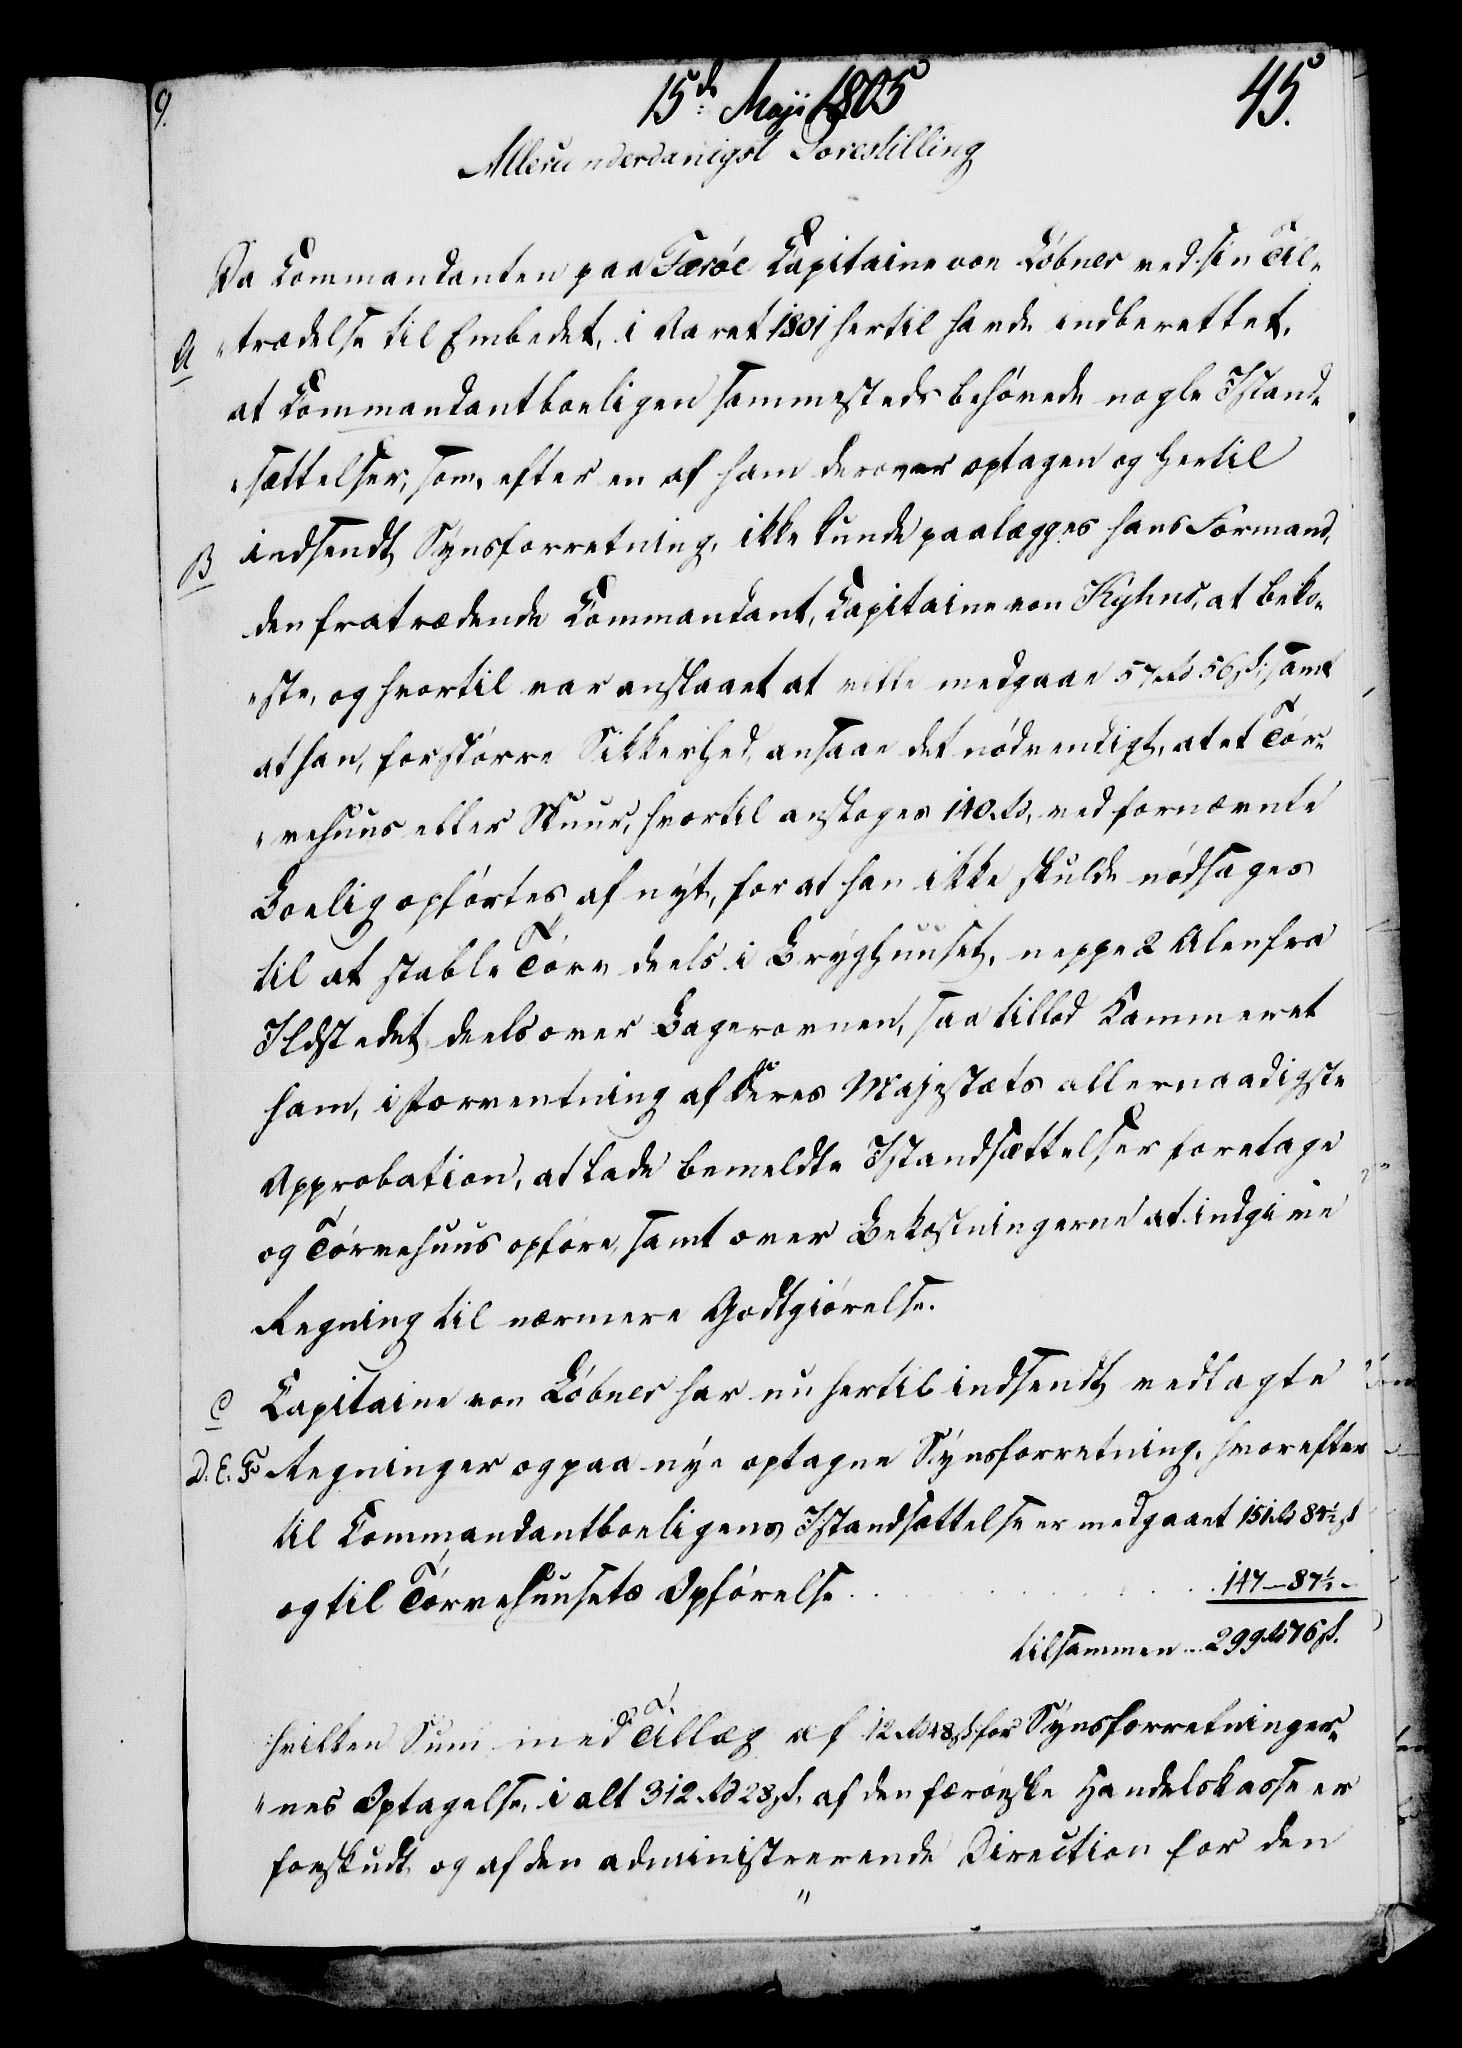 9.
15de Maji 1805
45.
Allerunderdanigst Forestilling
Da Commandanten paa Færöe Capitaine von Löbner ved sin Til-
A
"trædelse til Embedet, i Aaret 1801 hertil havde indberettet,
at Commandantboeligen sammesteds behövede nogle Istand-
"sættelser, som, efter en af ham derover optagen og hertil
B
indsendt Synsforretning, ikke kunde paalægges hans Formand,
den fratrædende Commandant, Capitaine von Kyhns, at beko-
"ste, og hvortil var anslaaet at ville medgaae 57 rd 56 s; samt
at han, for större Sikkerhed, ansaae det nödvendigt, at et Tör-
"vehuus eller Skuur, hvortil ansloges 140 rd, ved fornævnte
Boelig opförtes af nyt, for at han ikke skulde nödsages
til at stable Törv deels i Bryghuuset, neppe 2 Alen fra
Ildstedet, deels over Bagerovnen, saa tillod Kammeret
ham, i Forventning af Deres Majestæts allernaadigste
Approbation, at lade bemeldte Istandsættelser foretage
og Törvehuus opföre, samt over Bekostningerne at indgive
Regning til nærmere Godtgiörelse.
C
Capitaine von Löbner har nu hertil indsendt vedlagte
D. E. F.
Regninger og paa nye optagne Synsforretning, hvorefter
til Commandantboeligens Istandsættelse er medgaaet 151 rd 84½ s
og til Törvehuusets Opförelse . . . . . 147 – 87½ –
tilsammen .. 299 rd 76 s.
hvilken Sum med Tillæg af 12 rd 48 s for Synsforretninger-
"nes Optagelse, i alt 312 rd 28 s. af den færöeske Handelskasse er
forskudt, og af den administrerende Direction for den
"